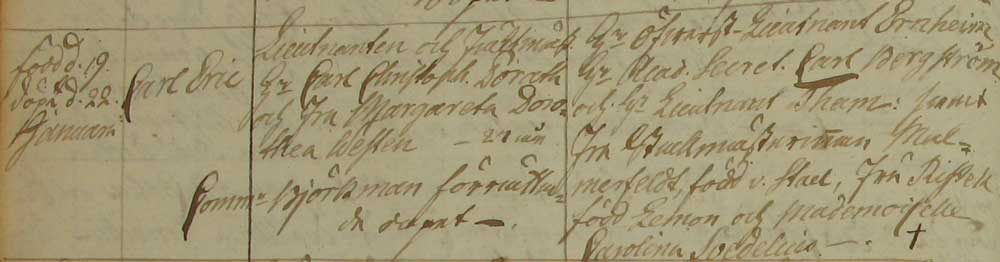 född d. 19.
döpt d. 22.
Januari
Carl Eric
Lieutnanten och
Hr Carl Christoph. Dörath
och Fru Margareta Doro-
thea Westen — 22 
Comm: Björkman förrättade
de dopet —.
Hr Öfwerst-Lieutnant Ernheim
Hr Acad. Secret. Carl Bergström
och Hr Lieutnant Tham: samt
Fru Stuckmästerinnan Mal=
merfeldt, född v. Stael, Fru Rissell
född Lemon och Mademoiselle
Carolina Svedelius —. †